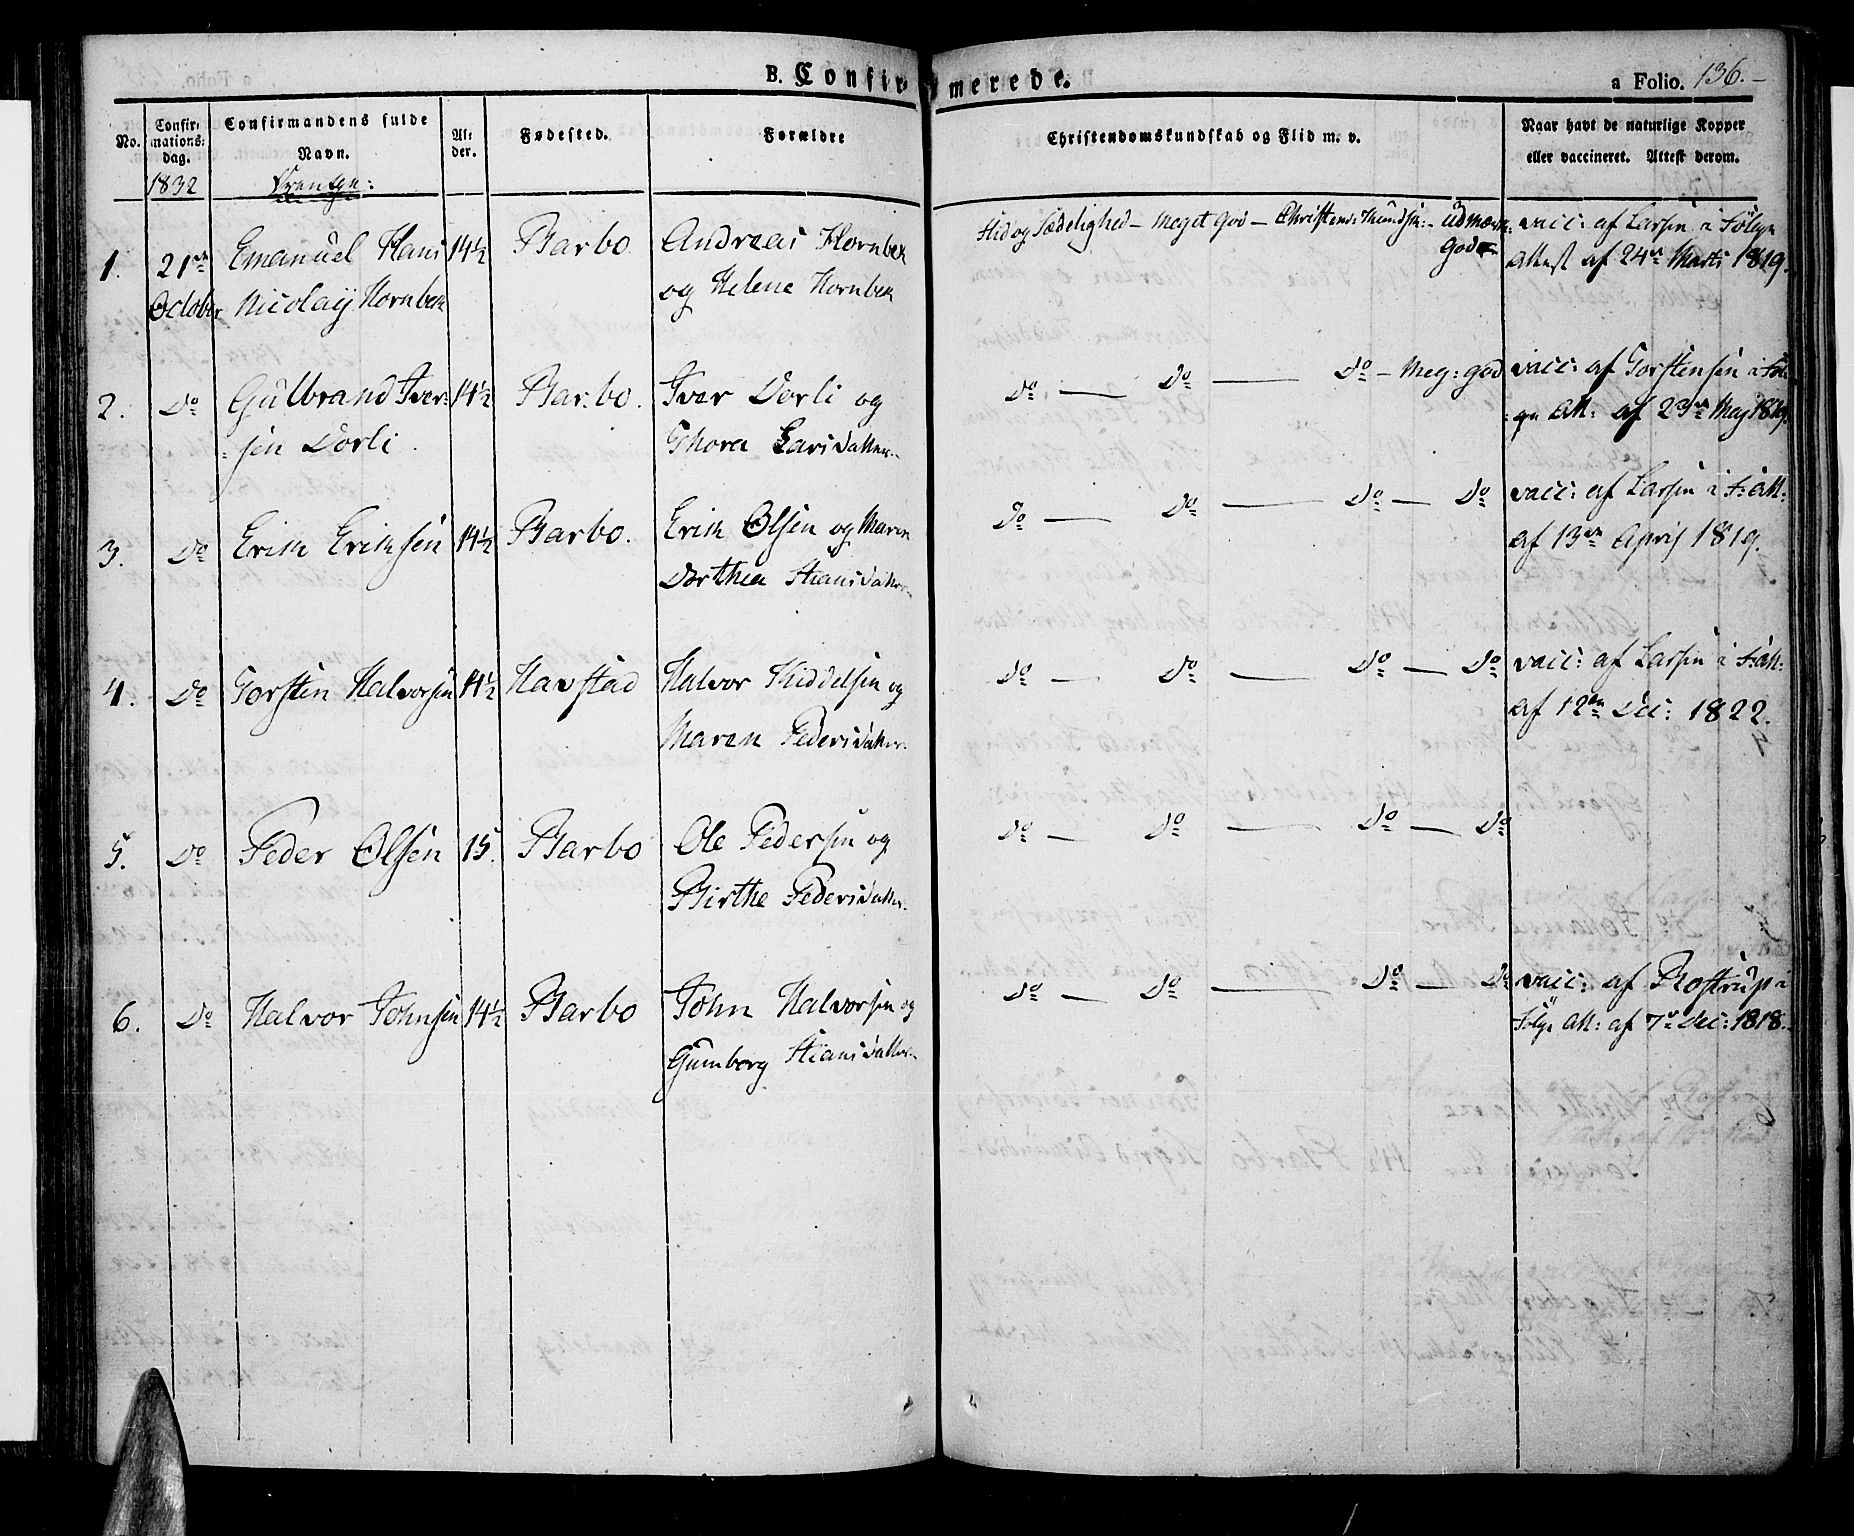 B. Confir-
merede.
a Folio. 136.-
No.
Confir:
mations:
dag.
1832
Confirmandens fulde
Navn.
Al:
der.
Fødested.
Forældre
Christendomskundskab og Flid m. v.
Naar havt de naturlige Kopper
eller vaccineret. Attest derom.
1. 21de Emanuel Hans 14½ Barbo Andreas Hornbek
October Nicolaij Hornbek og Helene Hornbek
Flid og Sædelighed - meget god - Christend: Kundsk: - Udmærk:
god
vacc: af Larsen i Følge
Attest af 24de Marts 1819.
2. Do Gulbrand Iver- 14½ Barbo. Iver Dorli og
sen Dorli. Thora Larsdatter
Do — Do — Do - Meg: god
vacc: af Torstensen i Føl-
ge Att: af 23de Maj 1819.
3. Do Erik Eriksen 14½ Barbo. Erik Olsen og Maren
Dorthea Stiansdatter
Do — Do — Do — Do
vacc: af Larsen i F: Att:
af 13de April 1819.
4. Do Torsten Halvorsen 14½ Havstad Halvor Kiddelsen og
Maren Pedersdatter
Do — Do — Do — Do
vacc: af Larsen i F: Att:
af 12te Dec: 1822.
5. Do Peder Olsen 15. Barbo Ole Pedersen og
Birthe Pedersdatter.
Do — Do — Do — Do
6. Do Halvor Johnsen 14½ Barbo John Halvorsen og
Gunborg Stiansdatter
Do — Do — Do — Do
vacc: af Rostrup i
Følge Att: af 7de Dec: 1818.